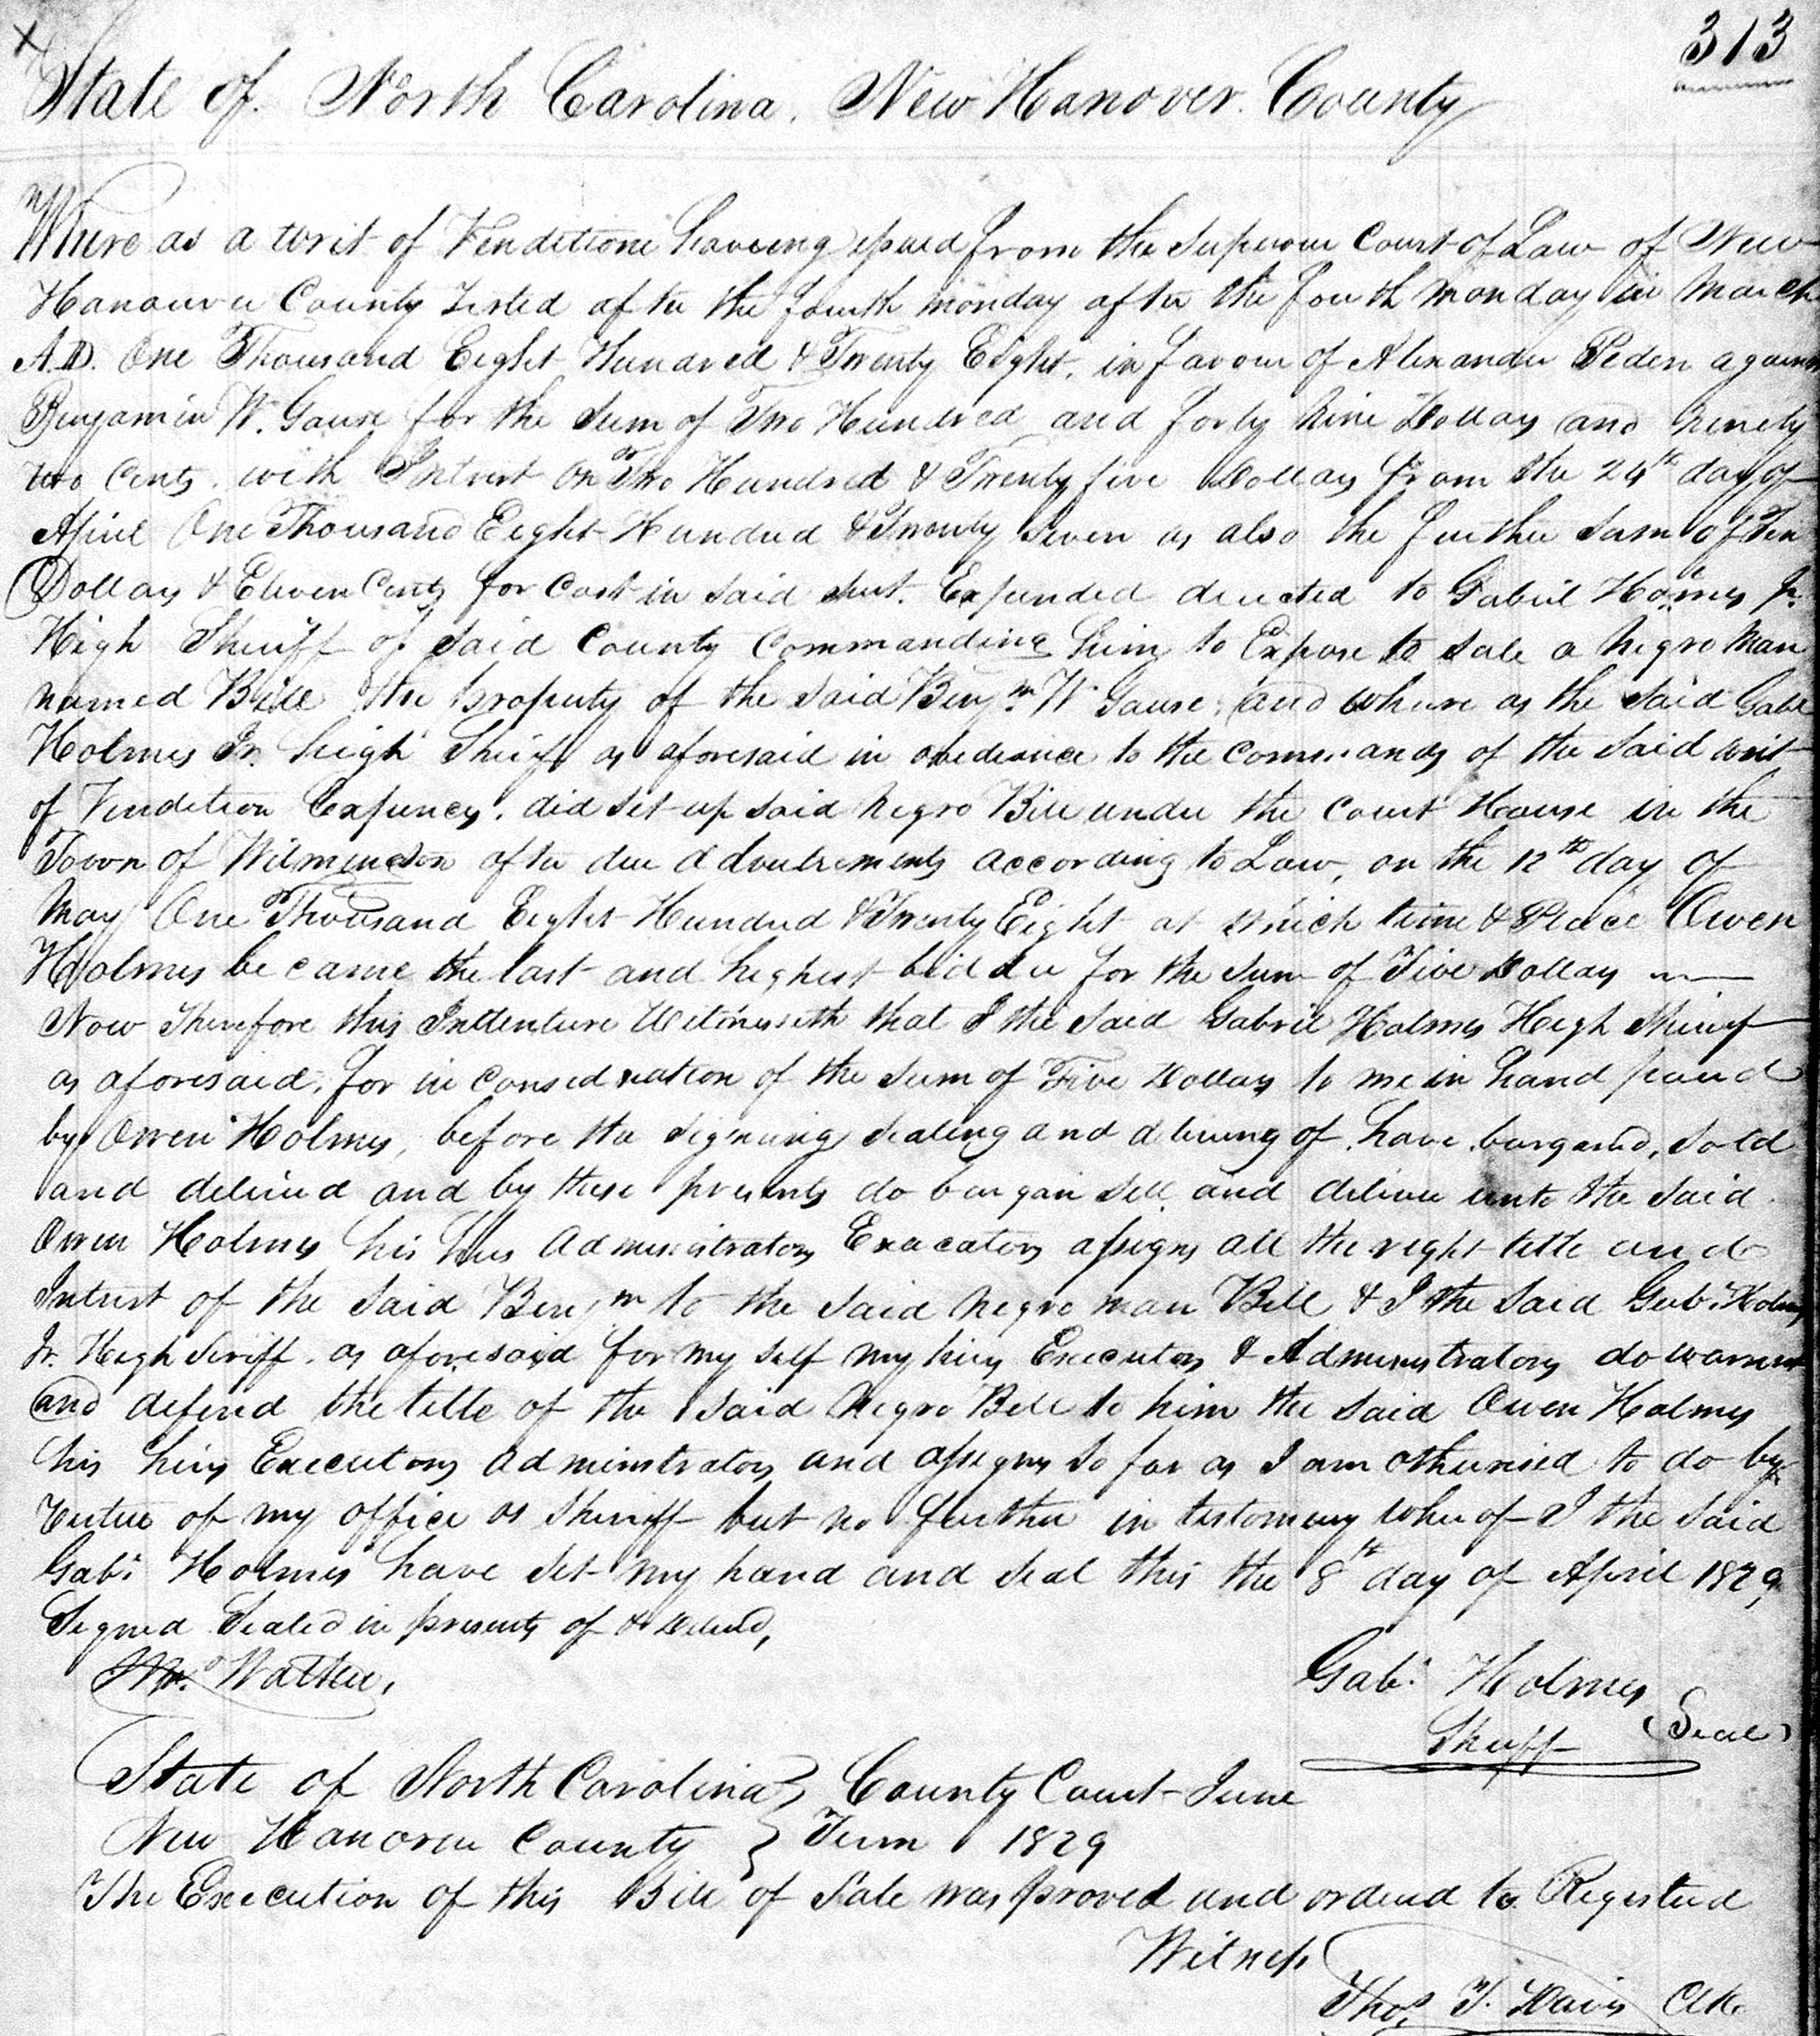 313
State of North Carolina. New Hanover County
Whereas a writ of Venditione haveing issued from the Superour Court of Law of New
Hanover County Tested after the fourth monday after the fourth Monday in March
A.D. One Thousand Eight Hundred & Twenty Eight, in favour of Alexander Peden against
Benjamin W. Gause for the Sum of Two Hundred and forty Nine Dollars and ninety
two Cents. with Intrest on Two Hundred & Twenty five Dollars from the 24th day of
April One Thousand Eight Hundred & Twenty Seven as also the further Sum of Ten
Dollars & Eleven Cents for Cost in Said Suit. Expended directed to Gabriel Holmes Jr.
High Sheriff of Said County Commanding him to Expose to Sale a Negro Man
named Bill the property of the Said Benjm W Gause, and where as the Said Gabl
Holmes Jr. high Sheriff as aforesaid in obediance to the commands of the Said writ
of Vendition Expences. did Set up Said Negro Bill under the Court House in the
Town of Wilmington after due advertisments according to Law, on the 12th day of
May One Thousand Eight Hundred & Twenty Eight at which time & Place Owen
Holmes became the last and highest bidder for the Sum of Five Dollars
Now Therefore this Indenture Witnesseth that I the Said Gabriel Holmes High Sheriff
as aforesaid, for in Considration of the Sum of Five Dollars to me in hand paid
by Owen Holmes, before the Signing Sealing and dlivering of, have bargand, Sold
and deliverd and by these presents do bargain Sell and deliver unto the Said
Owen Holmes his heirs Administrators Exacators assigns all the right title and
Intrest of the Said Benjm to the Said Negro man Bill & I the Said Gab. Holmes
Jr. High Seriff. as aforesaid for my Self my heirs Executors & Administrators do warrent
and defend the title of the Said Negro Bill to him the Said Owen Holmes
his heirs Executors Administrators and assigns So far as I am otherwised to do by
Vertue of my office as Sheriff but no further in testomeny wherof I the Said
Gabl Holmes have Set my hand and Seal this the 8th day of April 1829,
Signed Sealed in presents of & Deliverd,
Walker,
Gabl. Holmes
Sheriff (Seal)
State of North Carolina } County Court June
New Hanover County } Term 1829
The Execution of this Bill of Sale was proved and orderd to Registerd
Witness
Thos. F. Davis Clk.